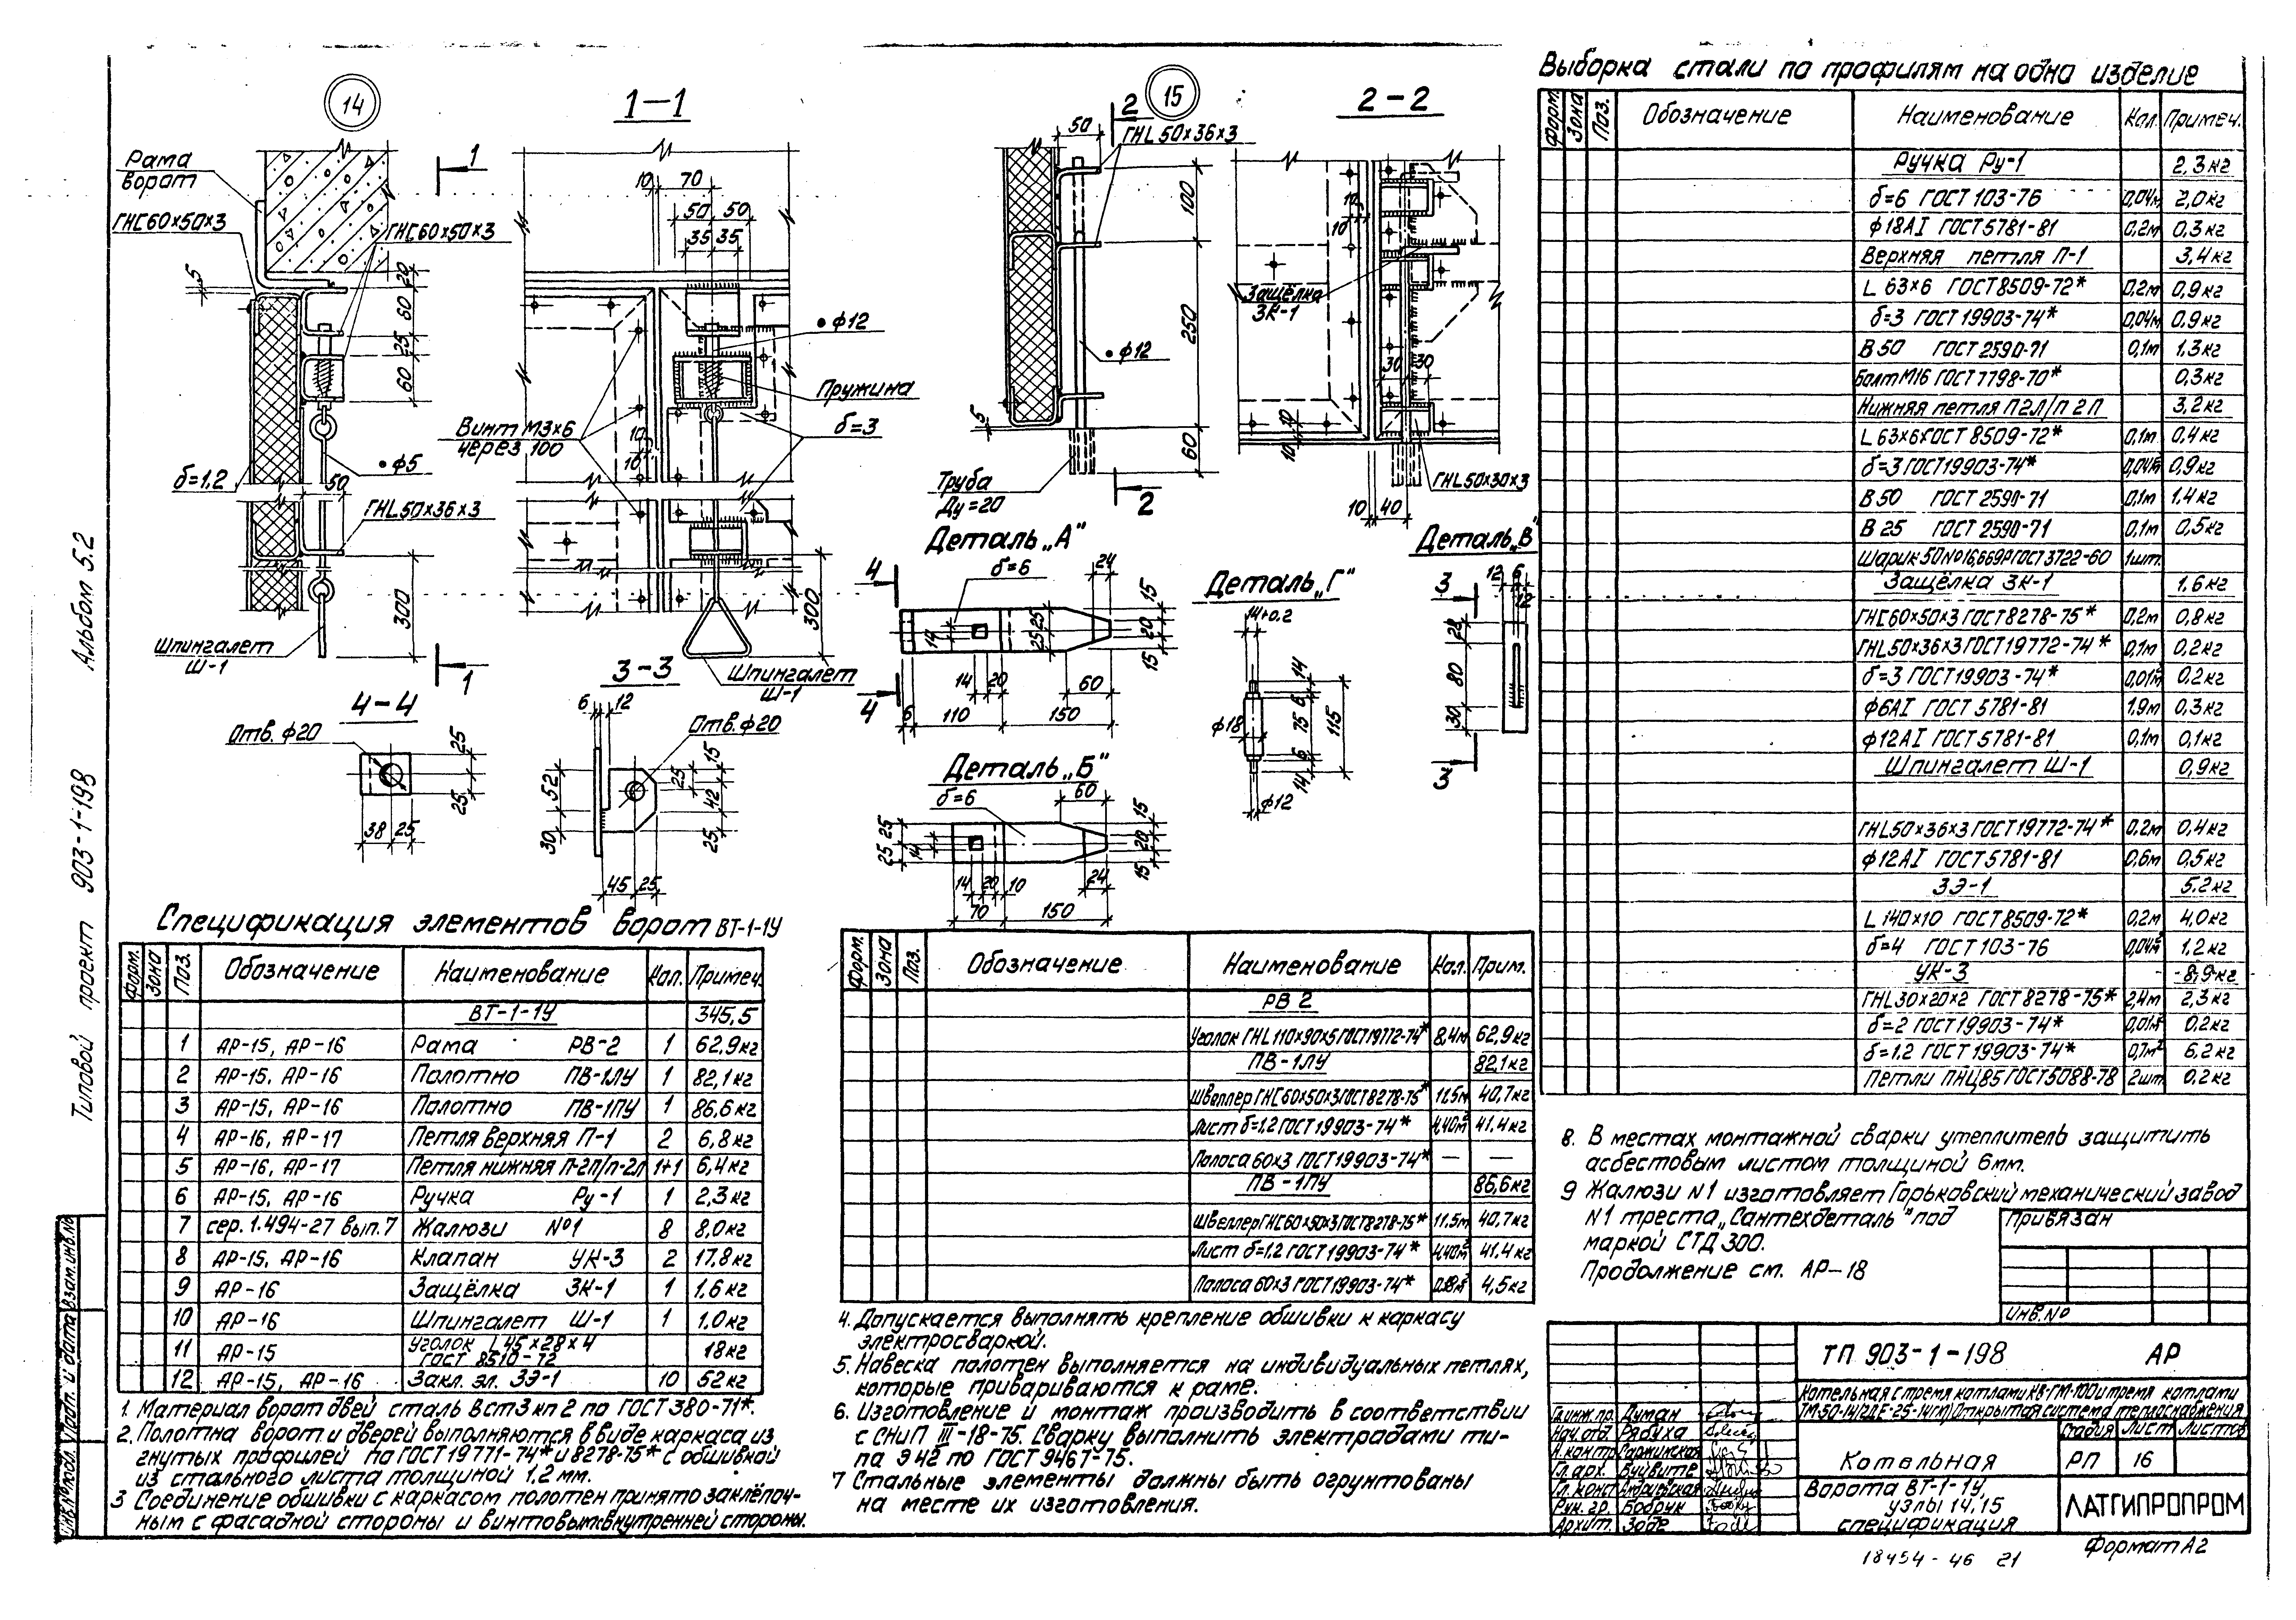 Альбом 5.2
Типовой проект 903-1-198
14
1-1
15
2-2
Рама
ворот
ГНС60×50×3
ГНС60×50×3
δ=1.2
•φ5
ГНL50×36×3
Шпингалет
Ш-1
300
Винт М3×6
через 100
•φ12
Пружина
δ=3
300
Шпингалет
Ш-1
ГНL50×36×3
•φ12
Труба
Ду=20
Защёлка
ЗК-1
ГНL50×30×3
4-4
Отв. φ20
38 25
3-3
6 12
Отв. φ20
45 25
Деталь „А"
δ=6
24
14 20 60
6 110 150
Деталь „Б"
δ=6
60
14 20 10 24
70 150
Деталь „Г"
14+0.2
φ18
φ12
Деталь „В"
12 6
Спецификация элементов ворот ВТ-1-1У
Форм. Зона Поз. Обозначение Наименование Кол. Примеч.
ВТ-1-1У 345,5
1 АР-15, АР-16 Рама РВ-2 1 62.9кг
2 АР-15, АР-16 Полотно ПВ-1ЛУ 1 82,1кг
3 АР-15, АР-16 Полотно ПВ-1ПУ 1 86,6кг
4 АР-16, АР-17 Петля верхняя П-1 2 6,8кг
5 АР-16, АР-17 Петля нижняя П-2П/П-2Л 1+1 6,4кг
6 АР-15, АР-16 Ручка Ру-1 1 2,3кг
7 сер. 1.494-27 вып.7 Жалюзи №1 8 8,0кг
8 АР-15, АР-16 Клапан УК-3 2 17.8кг
9 АР-16 Защёлка ЗК-1 1 1.6кг
10 АР-16 Шпингалет Ш-1 1 1.0кг
11 АР-15 Уголок L 45×28×4 ГОСТ 8510-72 18кг
12 АР-15, АР-16 Закл. эл. ЗЭ-1 10 52кг
1. Материал ворот двей сталь ВСт3кп2 по ГОСТ 380-71*.
2. Полотна ворот и дверей выполняются в виде каркаса из
гнутых профилей по ГОСТ 19771-74* и 8278-75* с обшивкой
из стального листа толщиной 1,2 мм.
3 Соединение обшивки с каркасом полотен принято заклёпоч-
ным с фасадной стороны и винтовым с внутренней стороны.
Форм. Зона Поз. Обозначение Наименование Кол. Прим.
РВ 2
Уголок ГНL110×90×5 ГОСТ 19772-74* 8,4м 62,9кг
ПВ-1ЛУ 82,1кг
Швеллер ГНС60×50×3 ГОСТ 8278-75* 11.5м 40,7кг
Лист δ=1,2 ГОСТ 19903-74* 4,40м² 41.4кг
Полоса 60×3 ГОСТ 19903-74* — —
ПВ-1ПУ 86,6кг
Швеллер ГНС60×50×3 ГОСТ 8278-75* 11,5м 40,7кг
Лист δ=1,2 ГОСТ 19903-74* 4,40м² 41.4кг
Полоса 60×3 ГОСТ 19903-74* 4,5кг
4. Допускается выполнять крепление обшивки к каркасу
электросваркой.
5. Навеска полотен выполняется на индивидуальных петлях,
которые привариваются к раме.
6. Изготовление и монтаж производить в соответствии
с СНиП III-18-75. Сварку выполнить электродами ти-
па Э42 по ГОСТ 9467-75.
7 Стальные элементы должны быть огрунтованы
на месте их изготовления.
Выборка стали по профилям на одно изделие
Форм. Зона Поз. Обозначение Наименование Кол. Примеч.
Ручка Ру-1 2,3кг
δ=6 ГОСТ 103-76 0,04м 2,0кг
φ18АI ГОСТ 5781-81 0,2м 0,3кг
Верхняя петля П-1 3,4кг
L 63×6 ГОСТ 8509-72* 0,2м 0,9кг
δ=3 ГОСТ 19903-74* 0,04м 0.9кг
В 50 ГОСТ 2590-71 0,1м 1.3кг
Болт М16 ГОСТ 7798-70* 0,3кг
Нижняя петля П2Л/П2П 3,2кг
L 63×6 ГОСТ 8509-72* 0,1м 0.4кг
δ=3 ГОСТ 19903-74* 0,04м² 0,9кг
В 50 ГОСТ 2590-71 0,1м 1.4кг
В 25 ГОСТ 2590-71 0,1м 0,5кг
Шарик 50 №16,669Р ГОСТ 3722-60 1шт.
Защёлка ЗК-1 1,6кг
ГНС60×50×3 ГОСТ 8278-75* 0,2м 0,8кг
ГНL50×36×3 ГОСТ 19772-74* 0,1м 0,2кг
δ=3 ГОСТ 19903-74* 0,01м² 0.2кг
φ6АI ГОСТ 5781-81 1.9м 0,3кг
φ12АI ГОСТ 5781-81 0,1м 0,1кг
Шпингалет Ш-1 0,9кг
ГНL50×36×3 ГОСТ 19772-74* 0,2м 0,4кг
φ12АI ГОСТ 5781-81 0,6м 0,5кг
ЗЭ-1 5.2кг
L 140×10 ГОСТ 8509-72* 0,2м 4,0кг
δ=4 ГОСТ 103-76 0,04м² 1,2кг
УК-3 8,9кг
ГНL30×20×2 ГОСТ 8278-75* 2,4м 2,3кг
δ=2 ГОСТ 19903-74* 0,01м² 0.2кг
δ=1.2 ГОСТ 19903-74* 0,7м² 6,2кг
Петли ПНЦ85 ГОСТ 5088-78 2шт 0.2кг
8. В местах монтажной сварки утеплитель защитить
асбестовым листом толщиной 6мм.
9 Жалюзи №1 изготовляет Горьковский механический завод
№1 треста „Сантехдеталь" под
маркой СТД 300.
Продолжение см. АР-18
Привязан
Инв.№
ТП 903-1-198 АР
Котельная с тремя котлами КВ-ГМ-100 и тремя котлами
Открытая система теплоснабжения
Гл.инж.пр. Думан
Нач.отд. Рябуха
Н.контр. Саржинская
Гл.арх. Вуцвите
Гл. конст. Андриевская
Рук. гр. Бобрик
Архит. Зоде
Котельная
Стадия Лист Листов
РП 16
Ворота ВТ-1-1У,
узлы 14,15
спецификация
ЛАТГИПРОПРОМ
Формат А2
18454-46 21
Взам.инв.№
Подп. и дата
Инв.№ подл.